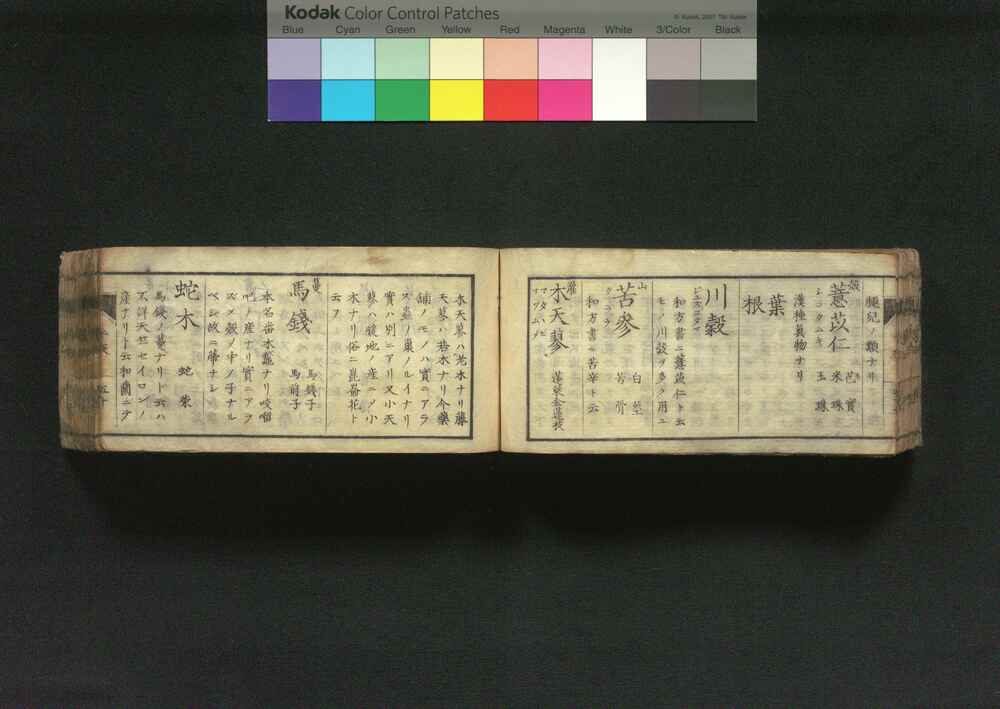 Kodak Color Control Patches
© Kodak, 2007 TM: Kodak
Blue Cyan Green Yellow Red Magenta White 3/Color Black
ノ類ナリ
薏苡仁 芭實 米珠 玉珠
漢種眞物ナリ
葉
根
川穀
和方書ニ薏苡仁ト云
モノ川穀ヲ多ク用ユ
苦參 白莖 苦骨
和方書ニ苦辛ト云
木天蓼
木天蓼ハ老木ナリ藤
天蓼ハ若木ナリ今藥
舗ノモノハ實ニアラ
ス蟲ノ巣ノルイナリ
實ハ別ニアリ又小天
蓼ハ暖地ノ産ニ〆小
木ナリ俗ニ崑崙花ト
云フ
馬錢 馬錢子 馬前子
本名番木鼈ナリ咬𠺕
吧ノ産ナリ實ニアラ
ズ〆殻ノ中ノ子ナル
ベシ故ニ蒂ナシ
蛇木 蛇柴
馬錢ノ莖ナリト云ハ
不詳天竺セイロンノ
産ナリト云和蘭ニテ